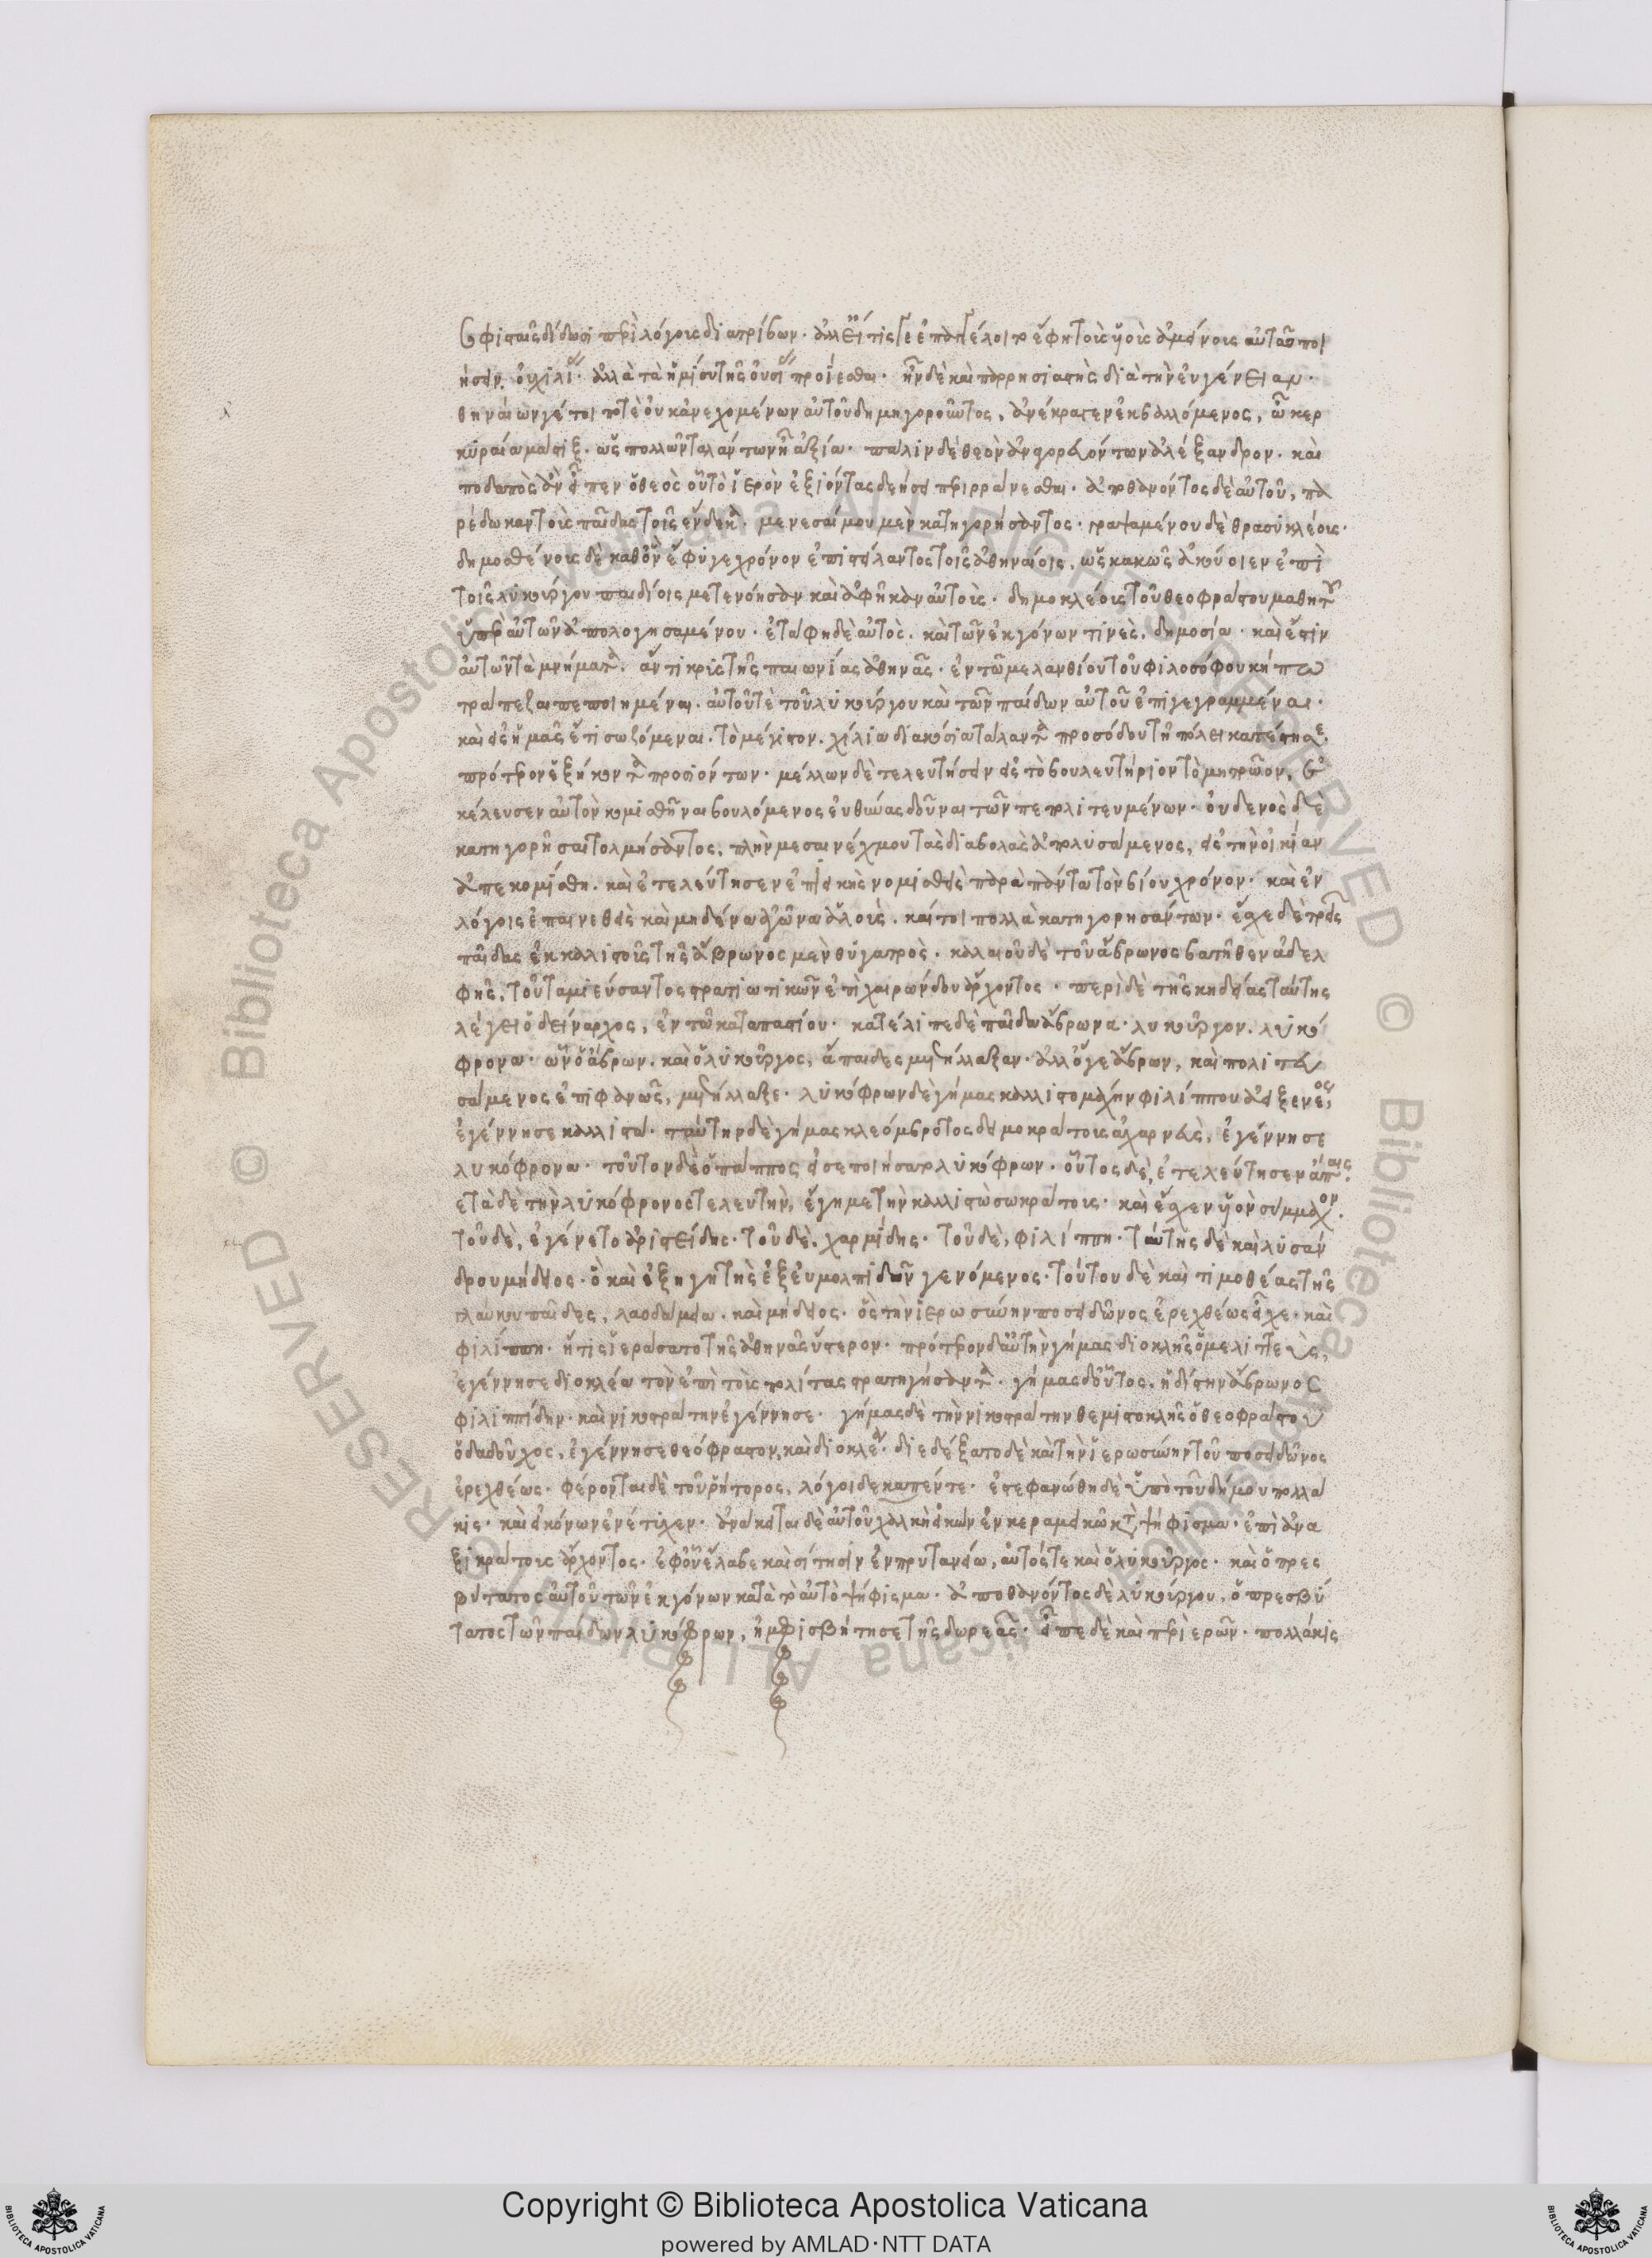 σοφισταῖς δίδωσι περὶ λόγοις διατρίβων· ἀλλ εἴ τις γε ἐπαγγέλοιτο ἔφη τοὺς υἱοὺς ἀμείνους αὐτῶ ποι
ήσειν, οὐ χιλίας· ἀλλὰ τὰ ἡμίση τῆς οὐσίας προΐεσθαι· ἦν δὲ καὶ παρρησιαστὴς διὰ τὴν εὐγένειαν·
θηναίων γέ τοι ποτὲ οὐκ ἀνεχομένων αὐτοῦ δημηγοροῦντος, ἀνέκραγεν ἐκβαλλόμενος, ὦ κερ
κυραία μάστιξ· ὡς πολλῶν ταλάντων ἦ ἀξία· πάλιν δὲ θεὸν ἀναγορευόντων ἀλέξανδρον· καὶ
ποδαπὸς ἂν εἶπεν ὁ θεὸς οὗ τὸ ἱερὸν ἐξιόντας δεήσει περιρραίνεσθαι· ἀποθανόντος δὲ αὐτοῦ, πα
ρέδωκαν τοὺς παῖδας τοῖς ἕνδεκα· μενεσαίμου μὲν κατηγορήσαντος· γραψαμένου δὲ θρασυκλέους·
δημοσθένους δὲ καθ ὃν ἔφυγε χρόνον ἐπιστείλαντος τοῖς ἀθηναίοις, ὡς κακῶς ἀκούοιεν ἐπὶ
τοῖς λυκούργου παιδίοις μετενόησαν καὶ ἀφῆκαν αὐτοὺς· δημοκλέους τοῦ θεοφράστου μαθητοῦ
ὑπὲρ αὐτῶν ἀπολογησαμένου· ἐτάφη δὲ αὐτὸς· καὶ τῶν ἐκγόνων τινὲς, δημοσία· καὶ ἔστιν
αὐτῶν τὰ μνήματα· ἄντικρις τῆς παιωνίας ἀθηνᾶς· ἐν τῶ μελανθίου τοῦ φιλοσόφου κήπω
τράπεζαι πεποιημέναι· αὐτοῦ τὲ τοῦ λυκούργου καὶ τῶν παίδων αὐτοῦ ἐπιγεγραμμέναι·
καὶ εἰς ἡμᾶς ἔτι σωζόμεναι· τὸ μέγιστον· χίλια διακόσια τάλαντα προσόδου τῆ πόλει κατέστησε·
πρότερον ἑξήκοντα προσιόντων· μέλλων δὲ τελευτήσειν εἰς τὸ βουλευτήριον τὸ μητρῶον, ἐ
κέλευσεν αὐτὸν κομισθῆναι βουλόμενος εὐθύνας δοῦναι τῶν πεπολιτευμένων· οὐδενὸς δὲ
κατηγορῆσαι τολμήσαντος, πλὴν μεσαινέχμου τὰς διαβολὰς ἀπολυσάμενος, εἰς τὴν οἰκίαν
ἀπεκομίσθη· καὶ ἐτελεύτησεν ἐπιεικὴς νομισθεὶς παρὰ πάντα τὸν βίου χρόνον· καὶ ἐν
λόγοις ἐπαινεθεὶς καὶ μηδένα ἀγῶνα ἁλοὺς· καίτοι πολλὰ κατηγορησάντων· ἔσχε δὲ τρεῖς
παῖδας ἐκ καλλιστοῦς τῆς ἅβρωνος μὲν θυγατρὸς· καλαιοῦ δὲ τοῦ ἅβρωνος βατῆθεν ἀδελ
φῆς, τοῦ ταμιεύσαντος στρατιωτικῶν ἐπὶ χαιρώνδου ἄρχοντος· περὶ δὲ τῆς κηδείας ταύτης
λέγει ὁ δείναρχος, ἐν τῶ κατὰ παστίου· κατέλιπε δὲ παῖδας ἅβρωνα· λυκοῦργον· λυκό
φρονα· ὧν ὁ ἅβρων, καὶ ὁ λυκοῦργος, ἄπαιδες μετήλλαξαν· ἀλλ ὅ γε ἅβρων, καὶ πολιτευ
σάμενος ἐπιφανῶς, μετήλλαξε· λυκόφρων δὲ γήμας καλλιστομάχην φιλίππου αἰξενέος,
ἐγέννησε καλλιστώ· ταύτην δὲ γήμας κλεόμβροτος δεμοκράτους ἀχαρνεὺς, ἐγέννησε
λυκόφρονα· τοῦτον δὲ ὁ πάππος εἰσεποιήσατο λυκόφρων· οὗτος δὲ, ἐτελεύτησεν ἄπαις·
ετὰ δὲ τὴν λυκόφρονος τελευτὴν, ἔγημε τὴν καλλιστὼ σωκράτους· καὶ ἔσχεν υἱὸν σύμμαχον·
τοῦ δὲ, ἐγένετο ἀριστείδης· τοῦ δὲ, χαρμίδης· τοῦ δὲ, φιλίππη· ταύτης δὲ καὶ λυσάν
δρου μήδειος· ὁ καὶ ἐξηγητὴς ἐξ εὐμολπιδῶν γενόμενος· τούτου δὲ καὶ τιμοθέας τῆς
γλαύκου παῖδες, λαοδάμεια· καὶ μήδειος· ὃς τὴν ἱερωσύνην ποσειδῶνος ἐρεχθέως εἶχε· καὶ
φιλίππη· ἥτις ἱεράσατο τῆς ἀθηνᾶς ὕστερον· πρότερον δ αὐτὴν γήμας διοκλῆς ὁ μελιτεὺς,
ἐγέννησε διοκλέα τὸν ἐπὶ τοὺς πολίτας στρατηγήσαντα· γήμας δ οὗτος, ἡδίστην ἅβρωνος
φιλιππίδην· καὶ νικοστράτην ἐγέννησε· γήμας δὲ τὴν νικοστράτην θεμιστοκλῆς ὁ θεοφράστου
ὁ δαδοῦχος, ἐγέννησε θεόφραστον, καὶ διοκλέα· διεδέξατο δὲ καὶ τὴν ἱερωσύνην τοῦ ποσειδῶνος
ἐρεχθέως· φέρονται δὲ τοῦ ῥήτορος, λόγοι δεκαπέντε· ἐστεφανώθη δὲ ὑπὸ τοῦ δήμου πολλά
κις· καὶ εἰκόνων ἐνέτυχεν· ἀνάκειται δὲ αὐτοῦ χαλκὴ εἰκὼν ἐν κεραμεικῶ κατὰ ψήφισμα· ἐπὶ ἀνα
ξικράτους ἄρχοντος· ἐφ οὗ ἔλαβε καὶ σίτησιν ἐν πρυτανείω, αὐτός τε καὶ ὁ λυκοῦργος· καὶ ὁ πρεσ
βύτατος αὐτοῦ τῶν ἐκγόνων κατὰ τὸ αὐτὸ ψήφισμα· ἀποθανόντος δὲ λυκούργου, ὁ πρεσβύ
τατος τῶν παίδων λυκόφρων, ἠμφισβήτησε τῆς δωρεᾶς· εἶπε δὲ καὶ περὶ ἱερῶν· πολλάκις
Copyright © Biblioteca Apostolica Vaticana
powered by AMLAD·NTT DATA